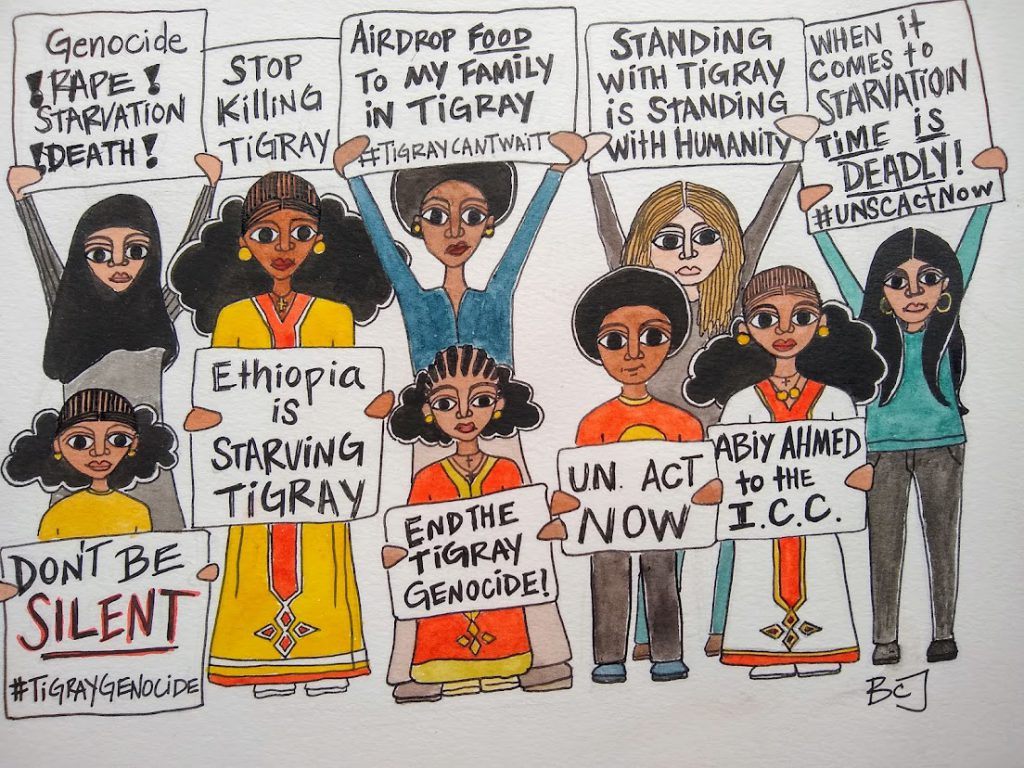 Genocide
! RAPE !
STARVATION
! DEATH !
STOP
Killing
TiGRAY
AIRDROP FOOD
To MY FAMILY
iN TiGRAY
#TiGRAYCANTWAIT
STANDING
WiTH TiGRAY
iS STANDING
WITH HUMANITY
WHEN iT
COMES to
STARVATION
TiME IS
DEADLY!
#UNSCActNow
Ethiopia
is
STARViNG
TiGRAY
DON'T BE
SILENT
#TiGRAYGENOCiDE
END THE
TiGRAY
GENOCiDE!
U.N. ACT
NOW
ABiY AHMED
to the
I.C.C.
BCJ